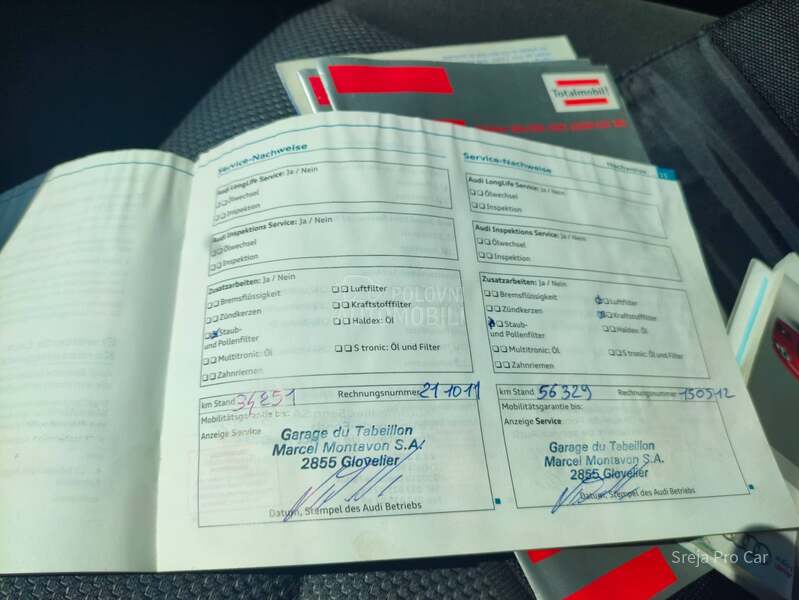 Totalmobil!
Service-Nachweise
Audi LongLife Service: Ja / Nein
Ölwechsel
Inspektion
Audi Inspektions Service: Ja / Nein
Ölwechsel
Inspektion
Zusatzarbeiten: Ja / Nein
Bremsflüssigkeit
Zündkerzen
Staub-
und Pollenfilter
Multitronic: Öl
Zahnriemen
Luftfilter
Kraftstofffilter
Haldex: Öl
S tronic: Öl und Filter
km Stand 34251
Rechnungsnummer 211011
Mobilitätsgarantie bis:
Anzeige Service
Garage du Tabeillon
Marcel Montavon S.A.
2855 Glovelier
Datum, Stempel des Audi Betriebs
Service-Nachweise
Nachweise 15
Audi LongLife Service: Ja / Nein
Ölwechsel
Inspektion
Audi Inspektions Service: Ja / Nein
Ölwechsel
Inspektion
Zusatzarbeiten: Ja / Nein
Bremsflüssigkeit
Zündkerzen
Staub-
und Pollenfilter
Multitronic: Öl
Zahnriemen
Luftfilter
Kraftstofffilter
Haldex: Öl
S tronic: Öl und Filter
km Stand 56329
Rechnungsnummer 150512
Mobilitätsgarantie bis:
Anzeige Service
Garage du Tabeillon
Marcel Montavon S.A.
2855 Glovelier
Datum, Stempel des Audi Betriebs
POLOVNI
MOBILI
Sreja Pro Car